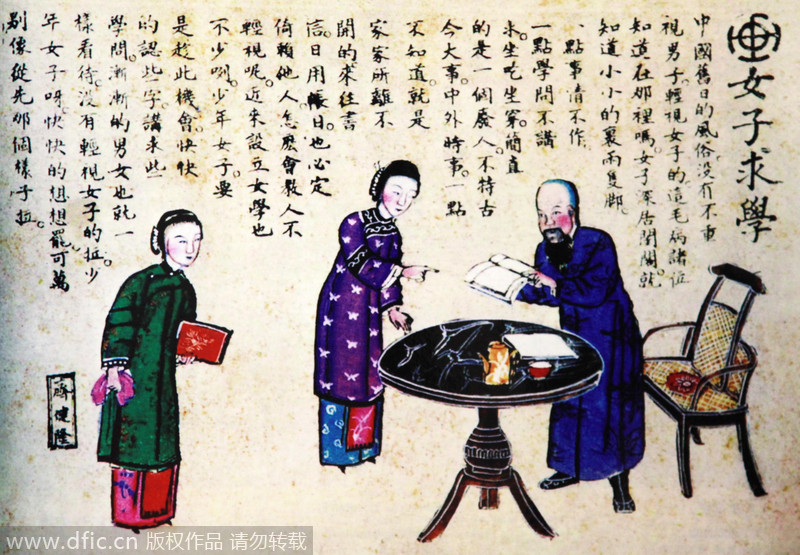 女子求學
中國舊日的風俗。没有不重
視男子。輕視女子的。這毛病諸位
知道在那裡嗎。女子深居閨閣。就
知道小小的裹兩隻脚。
一點事情不作。
一點學問不講
求。坐吃坐穿。簡直
的是一個廢人。不特古
今大事。中外時事。一點
不知道。就是
家家所離不
開的來往書
信。日用帳目。也必定
倚賴他人。怎麽會教人不
輕視呢。近來設立女學也
不少咧。少年女子。要
是趁此機會。快快
的認些字。講求些
學問。漸漸的男女也就一
樣看待。没有輕視女子的拉。少
年女子呀。快快的想想罷。可萬
别像從先那個樣子拉。
齊健隆
www.dfic.cn 版权作品 请勿转载